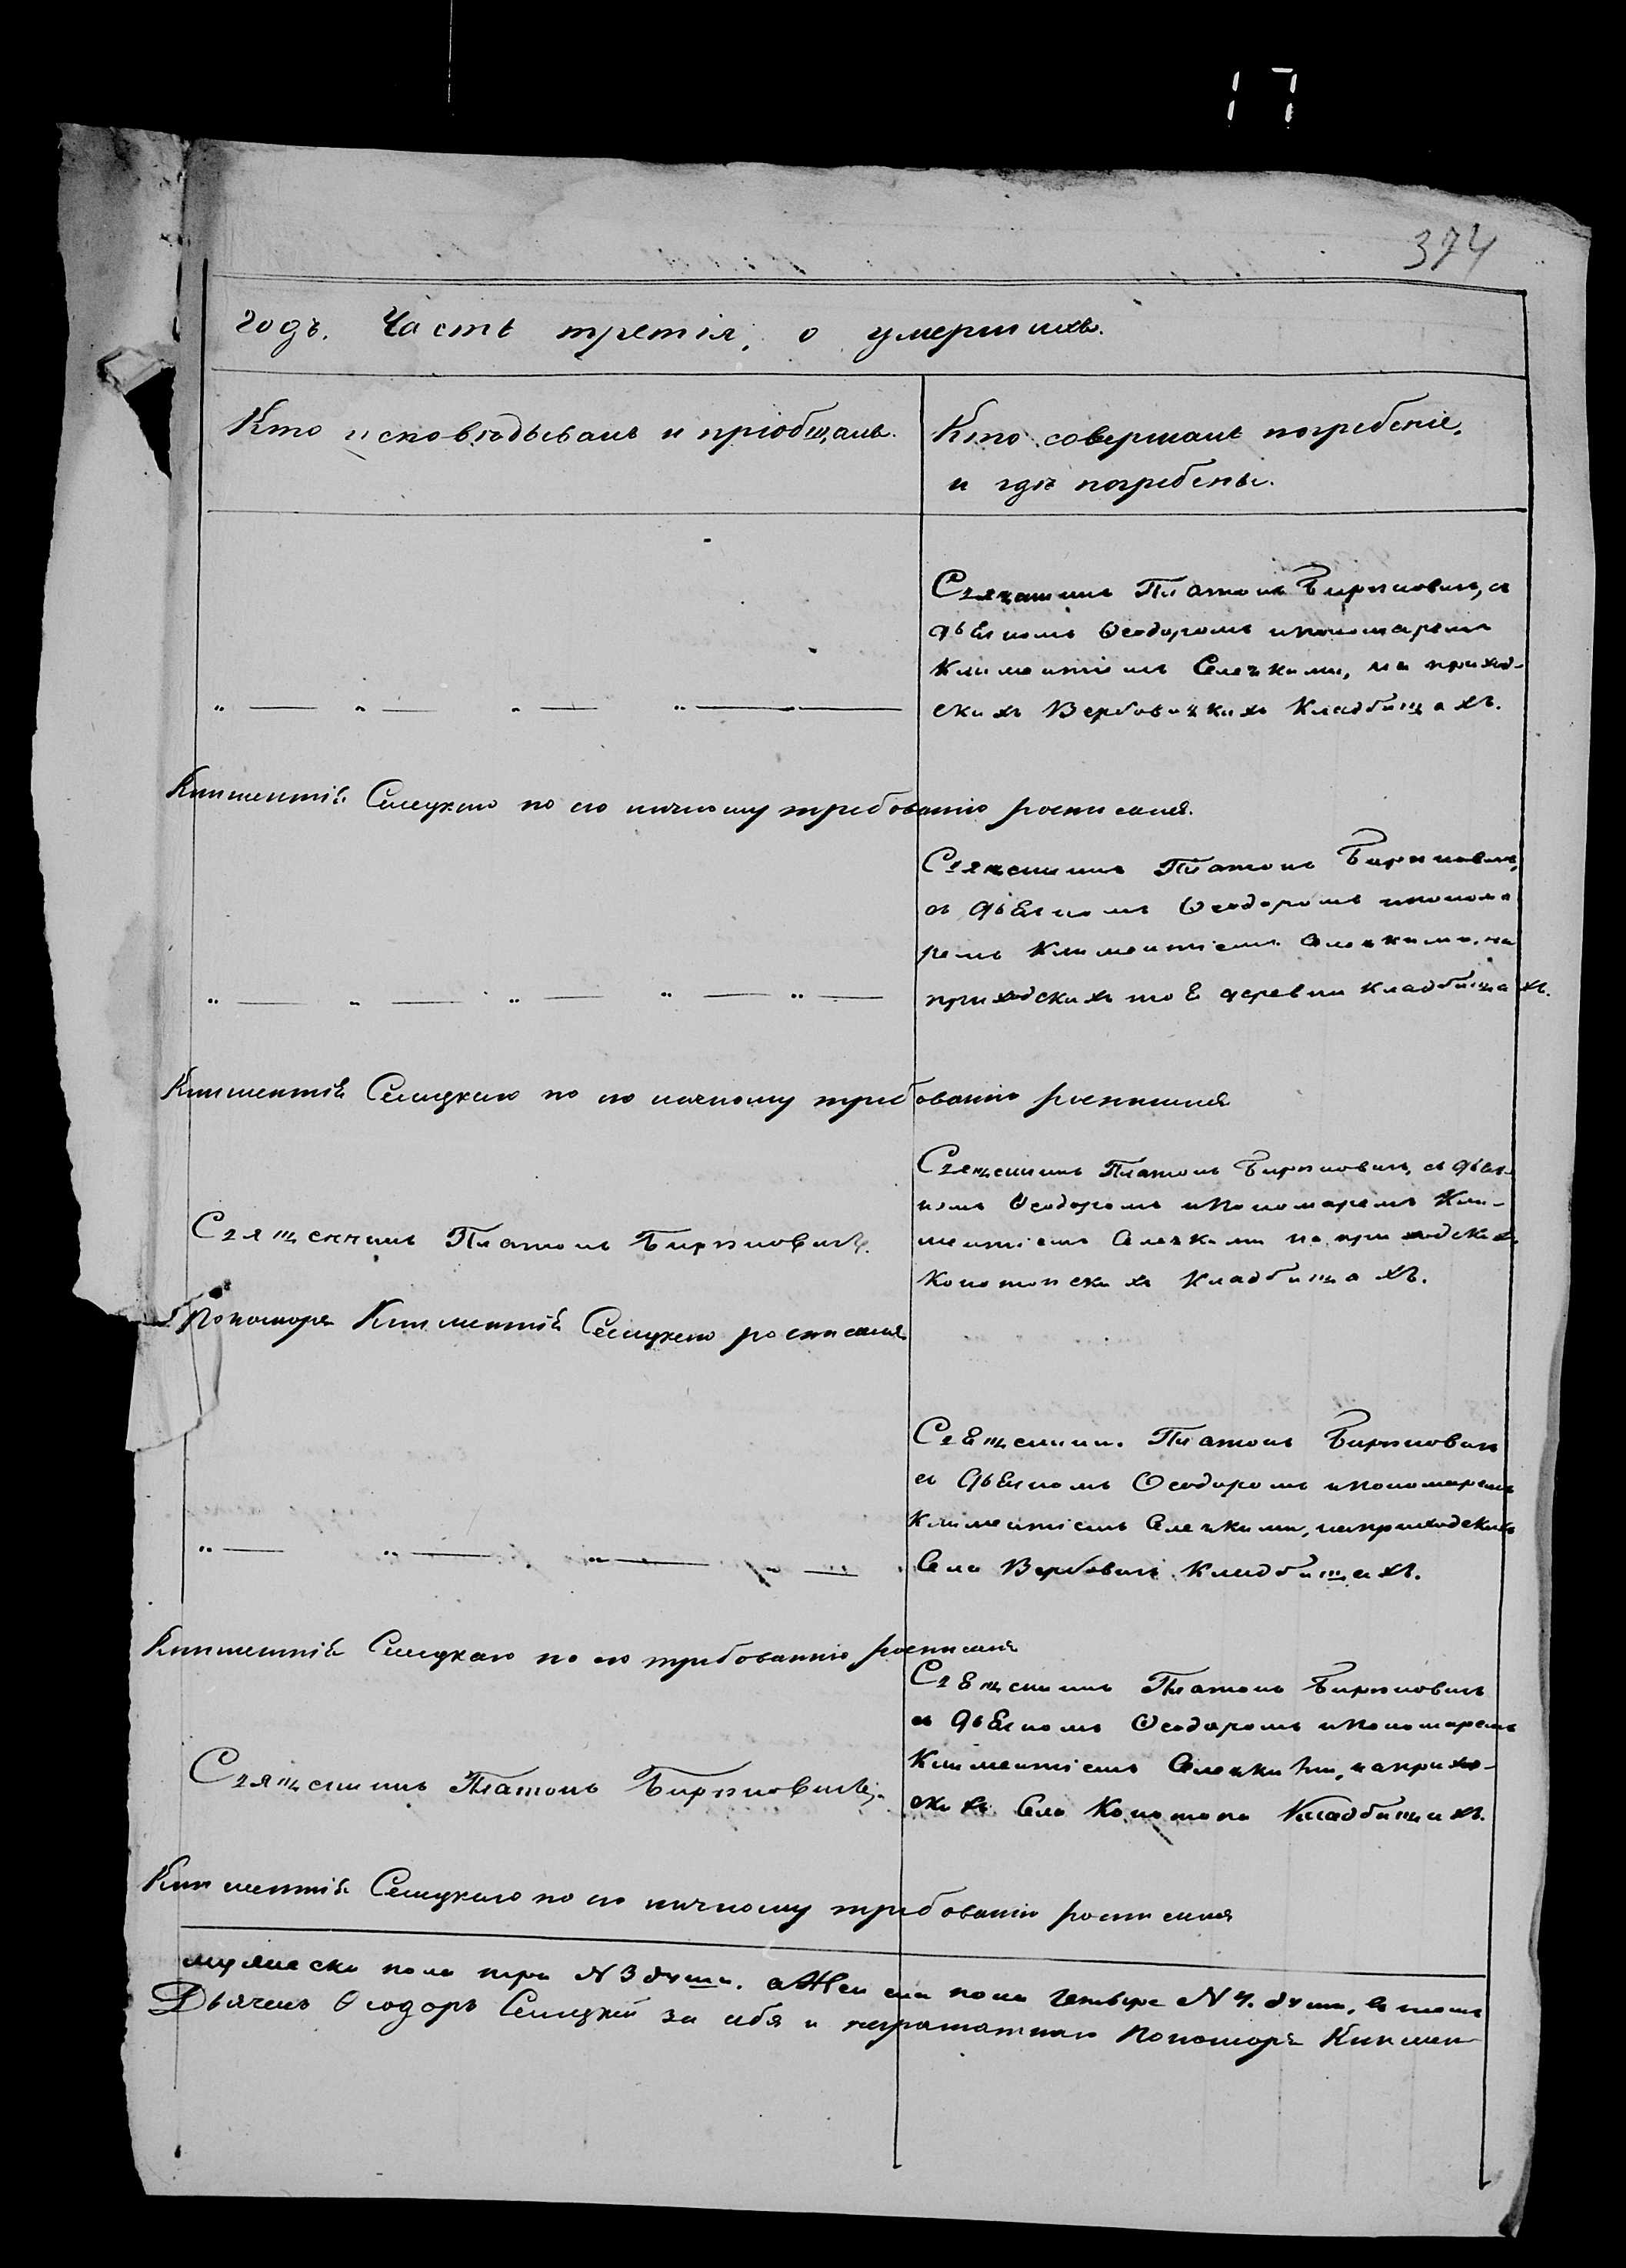 17
374
годъ. Часть третія, о умершихъ.
Кто исповѣдывалъ и пріобщалъ.
Кто совершалъ погребеніе,
и гдѣ погребены.
Священникъ Платонъ съ
дьячкомъ Ѳеодоромъ и пономаремъ
Климентіемъ Селецкими, на приход-
скихъ Вербовичкихъ Кладбищахъ.
Климентій Селецкаго по его личному требованію росписался.
Священникъ Платонъ
съ дьячкомъ Ѳеодоромъ и понома
ремъ Климентіемъ Селецкими, на
приходскихъ тоя деревни кладбищахъ.
Климентія Селецкаго по его личному требованію росписался
Священникъ Платонъ съ дьяч-
комъ Ѳеодоромъ и Пономаремъ Кли-
ментіемъ Селецкими на приходскихъ
Конотопскихъ Кладбищахъ.
Священникъ Платонъ
Пономаря Климентія Селецкаго росписался
Священникъ Платонъ
съ дьячкомъ Ѳеодоромъ и Пономаремъ
Климентіемъ Селецкими, на приходскихъ
Села Вербовичъ Кладбищахъ.
Климентія Селецкаго по его требованію росписался
Священникъ Платонъ
съ дьячкомъ Ѳеодоромъ и Пономаремъ
Климентіемъ Селецкими, на прихо-
скихъ Села Конотопа Кладбищахъ.
Священникъ Платонъ
Климентія Селецкаго по его личному требованію росписался
мужеска пола три N 3 души. а Женска пола четыре N 4. души,
Дьячекъ Ѳеодоръ Селецкій за себя и неграматнаго Пономаря Климен